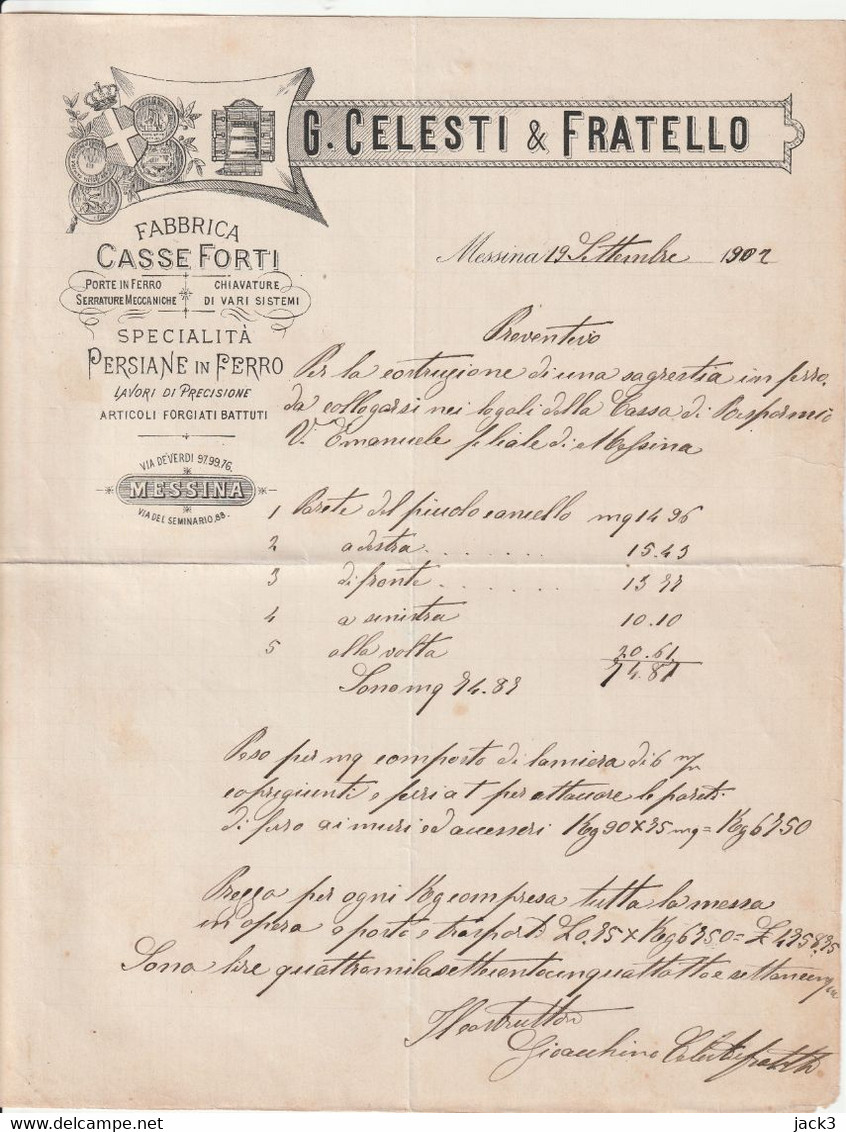 G. CELESTI & FRATELLO
FABBRICA
CASSE FORTI
PORTE IN FERRO
SERRATURE MECCANICHE
CHIAVATURE
DI VARI SISTEMI
SPECIALITÀ
PERSIANE IN FERRO
LAVORI DI PRECISIONE
ARTICOLI FORGIATI BATTUTI
VIA DE'VERDI 97.99.76.
MESSINA
VIA DEL SEMINARIO, 88.
Messina 19 Settembre 1902
Preventivo
Per la costruzione di una sagrestia in ferro,
da collogarsi nei logali della Cassa di Risparmio
V. Emanuele filiale di Messina
1 Parete del piccolo cancello mq 14 96
2 a destra . . . . . . . . 15.43
3 di fronte . . . . . . . 13 77
4 a sinistra 10.10
5 alla volta 20.61
74.87
Sono mq 74.87
Peso per mq composto di lamiera di 6 m/m
coprigiunti e ferri a T per attaccare le pareti
di ferro ai muri ed accesseri Kg 90 x 75 mq = Kg 6750
Prezzo per ogni Kg compresa tutta la messa
in opera e porto e trasporti £ 0.75 x Kg 6750 = £
Sono lire quattromilasettecentocinquattotto e
Il costruttore
Gioacchino Celesti
www.delcampe.net
jack3